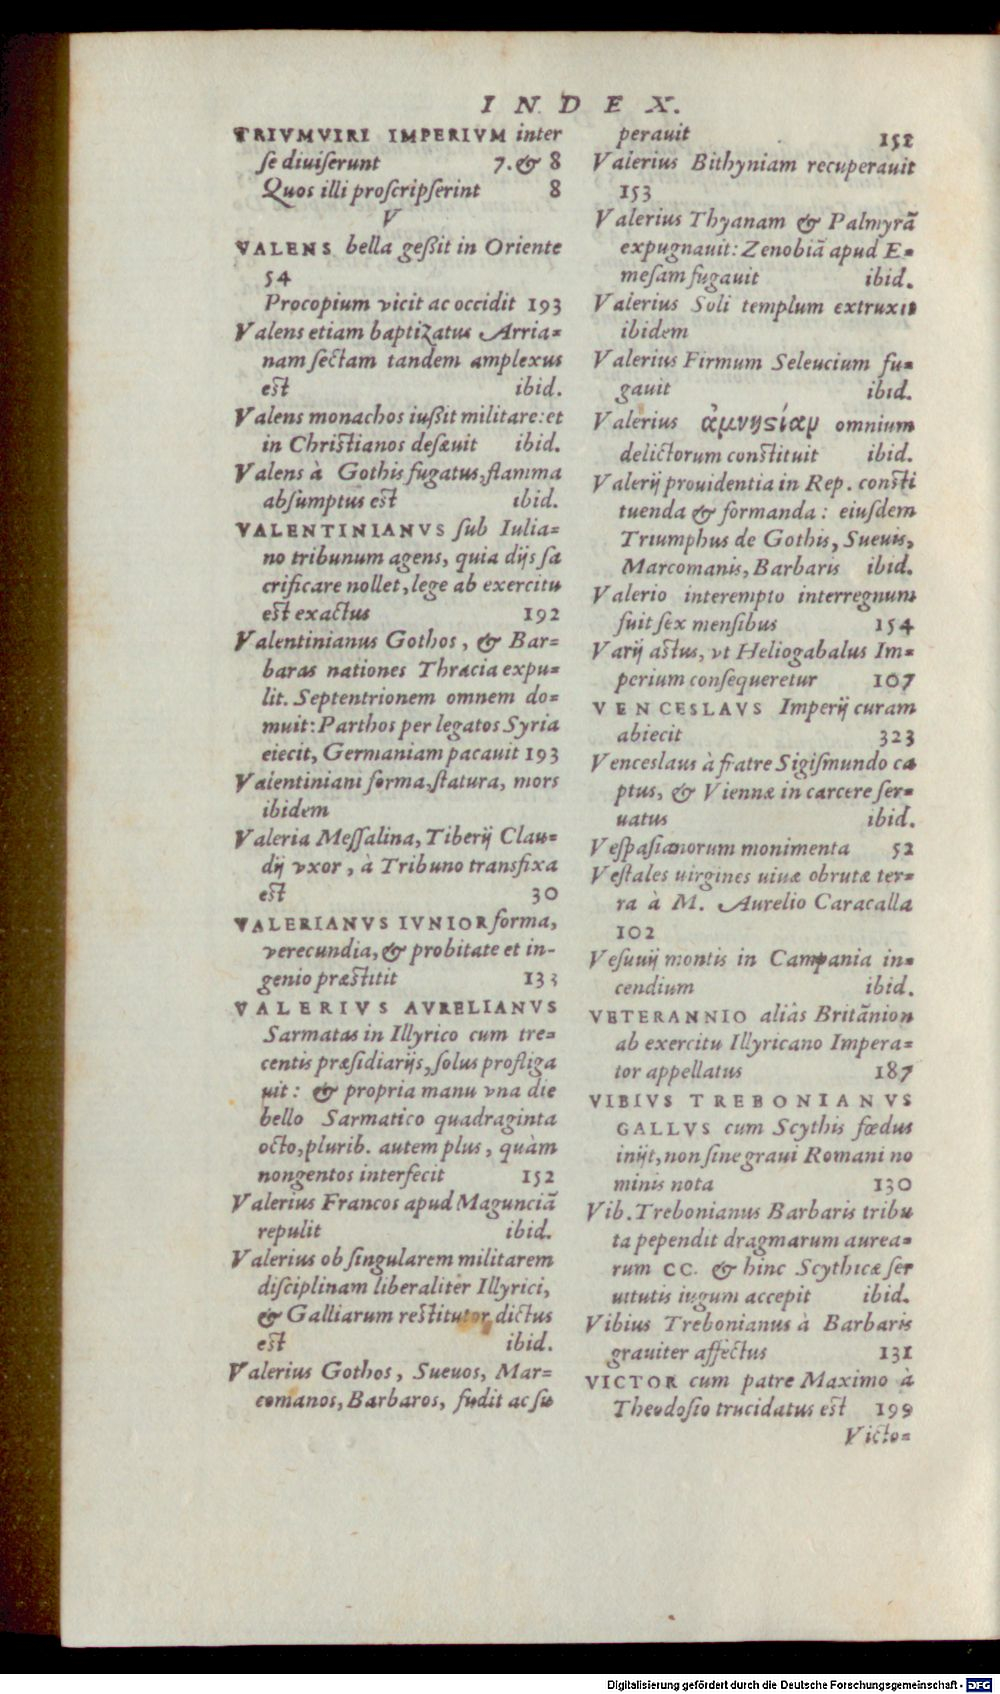 INDEX.
TRIVMVIRI IMPERIVM inter
ſe diuiſerunt 7. & 8
Quos illi proſcripſerint 8
V
VALENS bella geßit in Oriente
54
Procopium vicit ac occidit 193
Valens etiam baptizatus Arria=
nam ſectam tandem amplexus
eſt ibid.
Valens monachos iußit militare: et
in Chriſtianos deſæuit ibid.
Valens à Gothis fugatus, flamma
abſumptus eſt ibid.
VALENTINIANVS ſub Iulia=
no tribunum agens, quia dijs ſa
crificare nollet, lege ab exercitu
eſt exactus 192
Valentinianus Gothos, & Bar=
baras nationes Thracia expu=
lit. Septentrionem omnem do=
muit: Parthos per legatos Syria
eiecit, Germaniam pacauit 193
Valentiniani forma, ſtatura, mors
ibidem
Valeria Meſſalina, Tiberij Clau=
dij vxor, à Tribuno transfixa
eſt 30
VALERIANVS IVNIOR forma,
verecundia, & probitate et in-
genio præſtitit 133
VALERIVS AVRELIANVS
Sarmatas in Illyrico cum tre=
centis præſidiarijs, ſolus profliga
uit: & propria manu vna die
bello Sarmatico quadraginta
octo, plurib. autem plus, quàm
nongentos interfecit 152
Valerius Francos apud Magunciā
repulit ibid.
Valerius ob ſingularem militarem
diſciplinam liberaliter Illyrici,
& Galliarum reſtitutor dictus
eſt ibid.
Valerius Gothos, Sueuos, Mar=
comanos, Barbaros, fudit ac ſu
perauit 152
Valerius Bithyniam recuperauit
153
Valerius Thyanam & Palmyrā
expugnauit: Zenobiā apud E=
meſam fugauit ibid.
Valerius Soli templum extruxit
ibidem
Valerius Firmum Seleucium fu=
gauit ibid.
Valerius ἀμνηςίαμ omnium
delictorum conſtituit ibid.
Valerij prouidentia in Rep. conſti
tuenda & formanda: eiuſdem
Triumphus de Gothis, Sueuis,
Marcomanis, Barbaris ibid.
Valerio interempto interregnum
fuit ſex menſibus 154
Varij aſtus, vt Heliogabalus Im=
perium conſequeretur 107
VENCESLAVS Imperij curam
abiecit 323
Venceslaus à fratre Sigiſmundo ca
ptus, & Viennæ in carcere ſer=
uatus ibid.
Veſpaſianorum monimenta 52
Veſtales uirgines uiuæ obrutæ ter=
ra à M. Aurelio Caracalla
102
Veſuuij montis in Campania in=
cendium ibid.
VETERANNIO aliâs Britānion
ab exercitu Illyricano Impera=
tor appellatus 187
VIBIVS TREBONIANVS
GALLVS cum Scythis fœdus
inijt, non ſine graui Romani no
minis nota 130
Vib. Trebonianus Barbaris tribu
ta pependit dragmarum aurea=
rum CC. & hinc Scythicæ ſer
uitutis iugum accepit ibid.
Vibius Trebonianus à Barbaris
grauiter affectus 131
VICTOR cum patre Maximo à
Theodoſio trucidatus eſt 199
Victo=
Digitalisierung gefördert durch die Deutsche Forschungsgemeinschaft - DFG